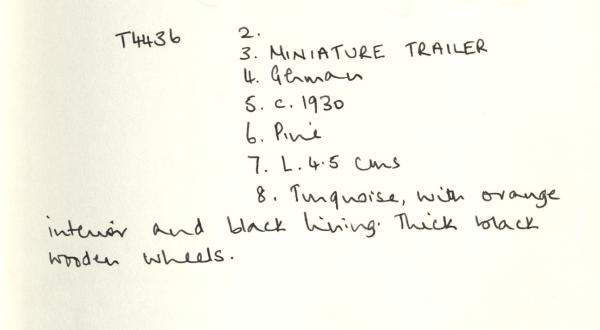 T4436 2.
3. MINIATURE TRAILER
4. German
5. c. 1930
6. Pine
7. L. 4.5 cms
8. Turquoise, with orange
interior and black lining. Thick black
wooden wheels.